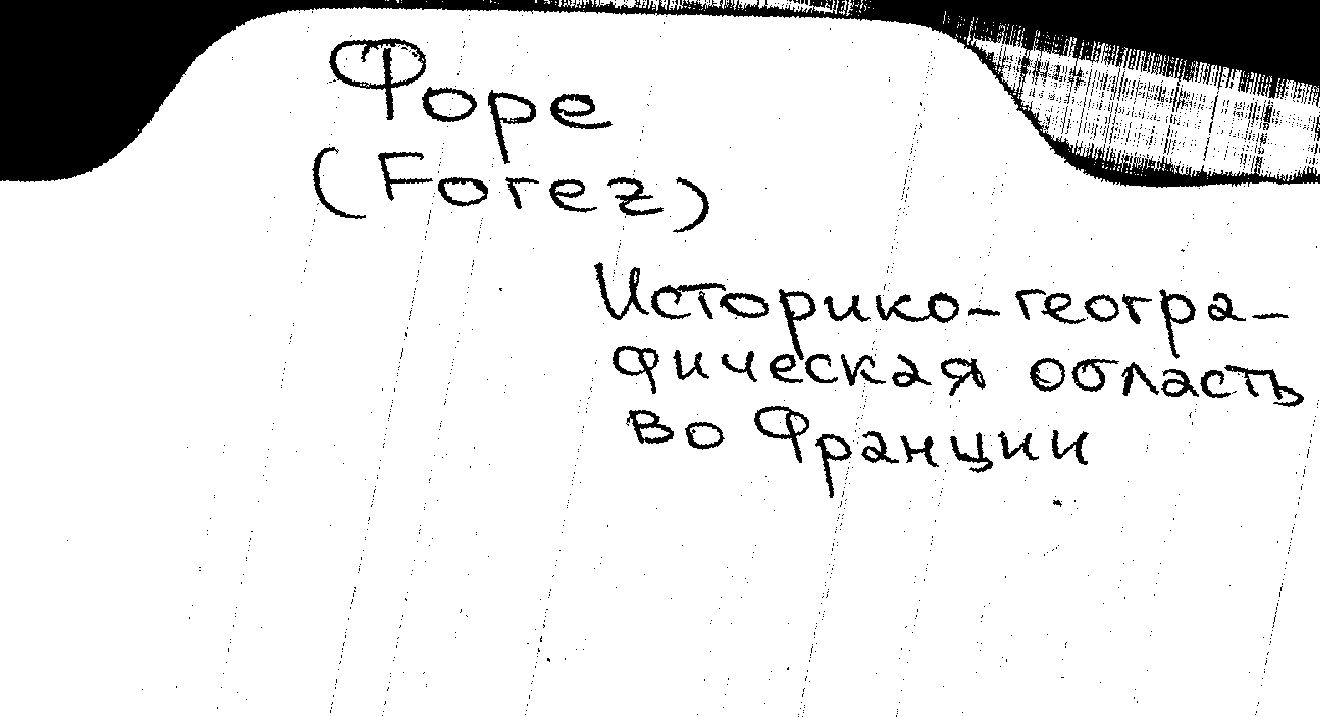 Форе
(Forez)
Историко-геогра-
фическая область
во Франции